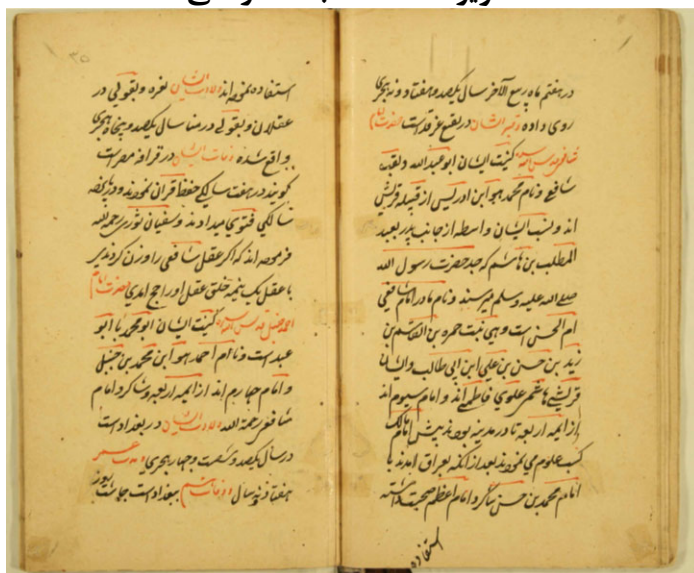 در هفتم ماه ربیع الآخر سال یکصد و هفتاد و نه هجری
روی داده و قبر ایشان در بقیع غرقد است حضرت امام
شافعی قدس الله سره کنیت ایشان ابو عبد الله و لقب
شافعی و نام محمد هو ابن ادریس از قبیله قریش
اند و نسب ایشان واسطه از جانب پدر بعبد
المطلب بن هاشم که جد حضرت رسول الله
صلی الله علیه وسلم میرسند و نام مادر امام شافعی
ام الحسن است وهی بنت حمزه بن القاسم بن
زید بن حسن بن علی ابن ابی طالب و ایشان
قریشی هاشمی علوی فاطمی اند و امام سیوم اند
از ایمه اربعه تا در مدینه بودند پیش امام مالک
کسب علوم می نمودند بعد از آنکه بعراق آمدند با
امام محمد بن حسن شاگرد امام اعظم صحبت داشته
استفاده
۳۵
استفاده نموده اند ولادت ایشان بغزه و بقولی در
عسقلان و بقولی در منا سال یکصد و پنجاه هجری
واقع شده وفات ایشان در قرافه مصر است
گویند در هفت سالگی حفظ قرآن نمودند و در پانزده
سالگی فتوی میدادند و سفیان ثوری رحمه الله
فرموده اند که اگر عقل شافعی را وزن کردندی
با عقل یک نیمه خلق عقل او راجح آمدی حضرت امام
احمد حنبل قدس الله سره کنیت ایشان ابو محمد یا ابو
عبد است و نام احمد هو ابن محمد بن حنبل
و امام چهارم اند از ایمه اربعه و شاگرد امام
شافعی رحمة الله ولادت ایشان در بغداد است
در سال یکصد و شصت و چهار هجری و مدت عمر
هفتاد و نه سال وفات ببغداد است چاشت روز